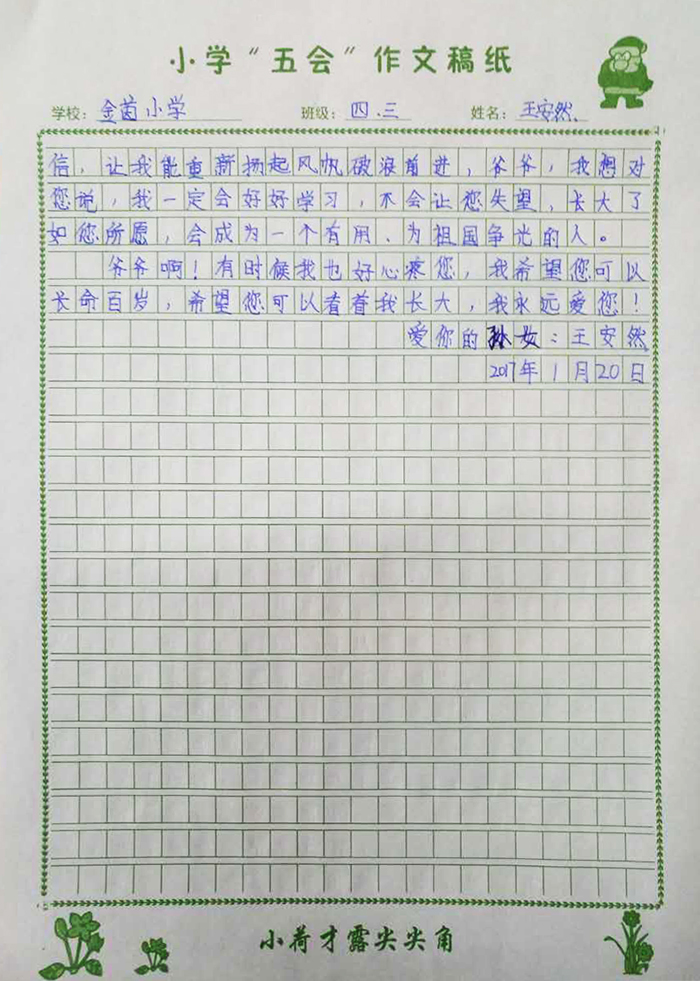 小学“五会”作文稿纸
学校：金茵小学 班级：四.三 姓名：王安然
信，让我能重新扬起风帆破浪前进，爷爷，我想对
您说，我一定会好好学习，不会让您失望，长大了
如您所愿，会成为一个有用、为祖国争光的人。
爷爷啊！有时候我也好心疼您，我希望您可以
长命百岁，希望您可以看着我长大，我永远爱您！
爱你的孙女：王安然
2017年1月20日
小荷才露尖尖角